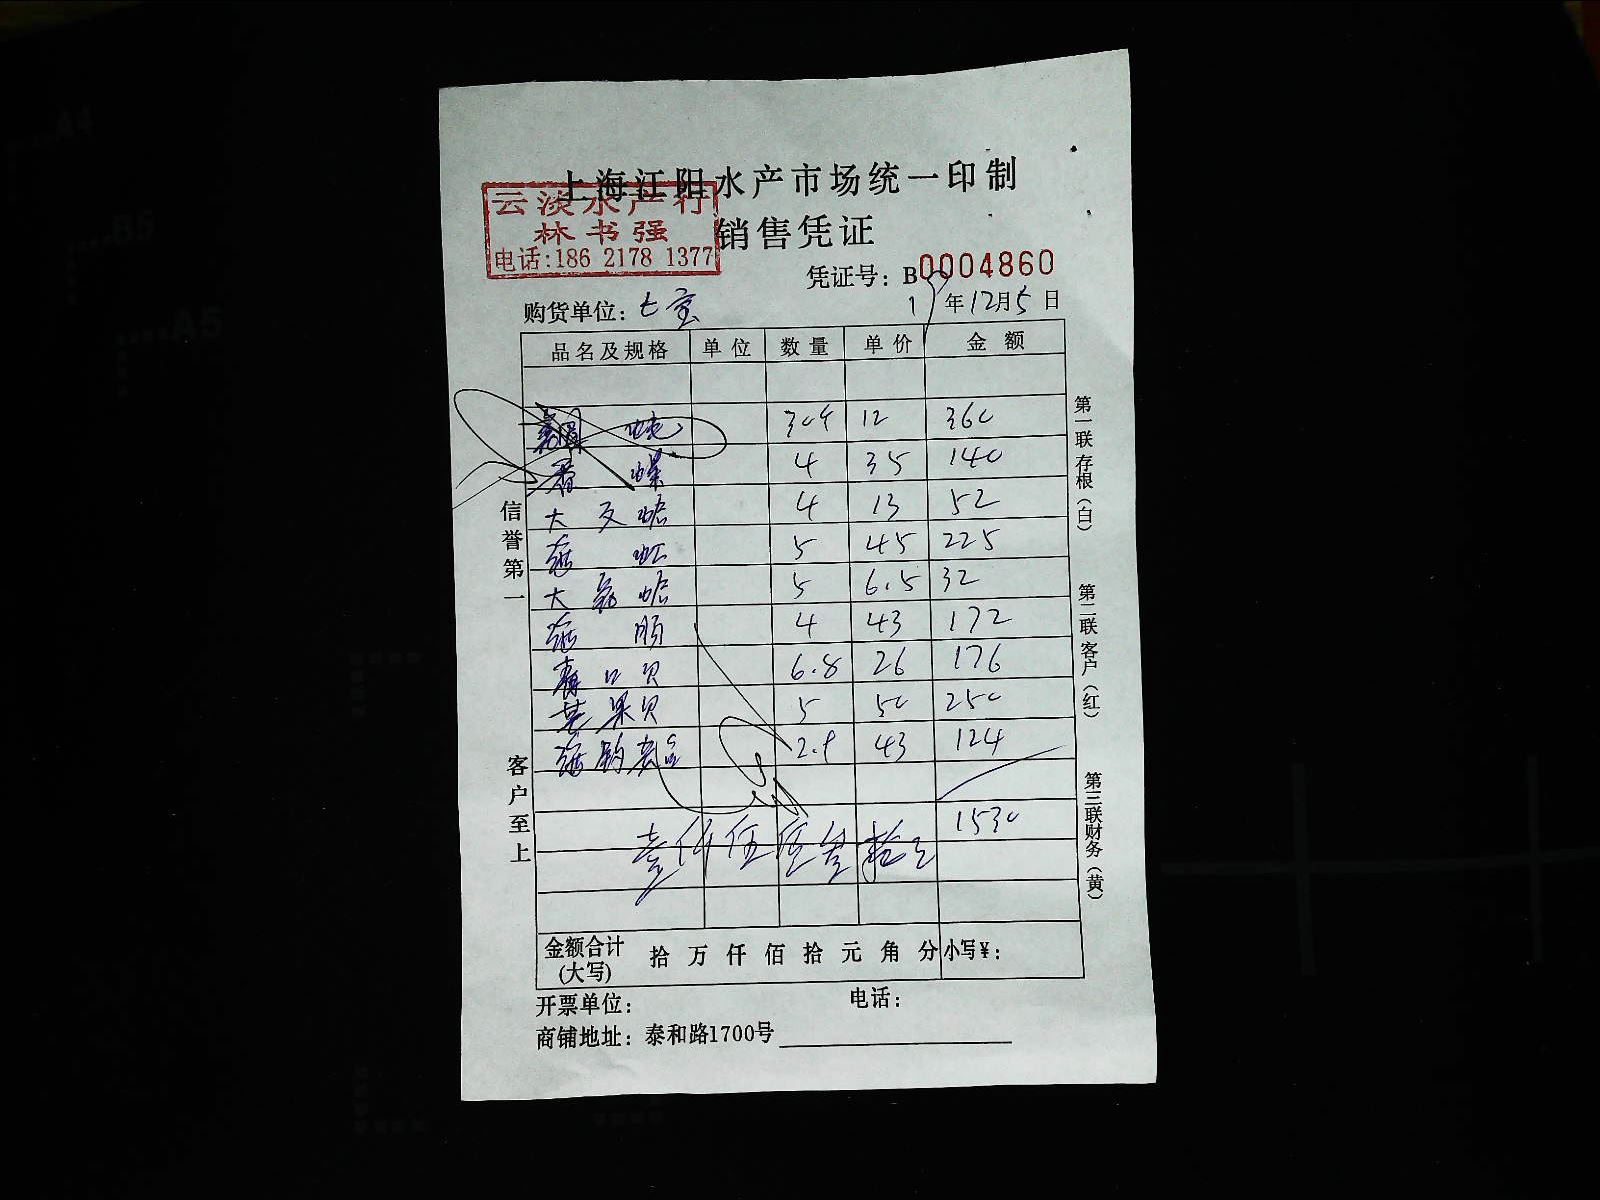 上海江阳水产市场统一印制
云淡水产行
林书强
电话:186 2178 1377
销售凭证
凭证号: B 0004860
购货单位: 七宝 19年12月5日
品名及规格 单位 数量 单价 金额
12 360
4 35 140
大 4 13 52
5 45 225
大 5 6.5 32
4 43 172
口贝 6.8 26 176
苹果贝 5 50 250
2.9 43 124
1530
壹仟伍佰叁拾元
金额合计(大写) 拾 万 仟 佰 拾 元 角 分 小写¥:
开票单位: 电话:
商铺地址: 泰和路1700号
信誉第一
客户至上
第一联存根(白)
第二联客户(红)
第三联财务(黄)
A4
B5
A5